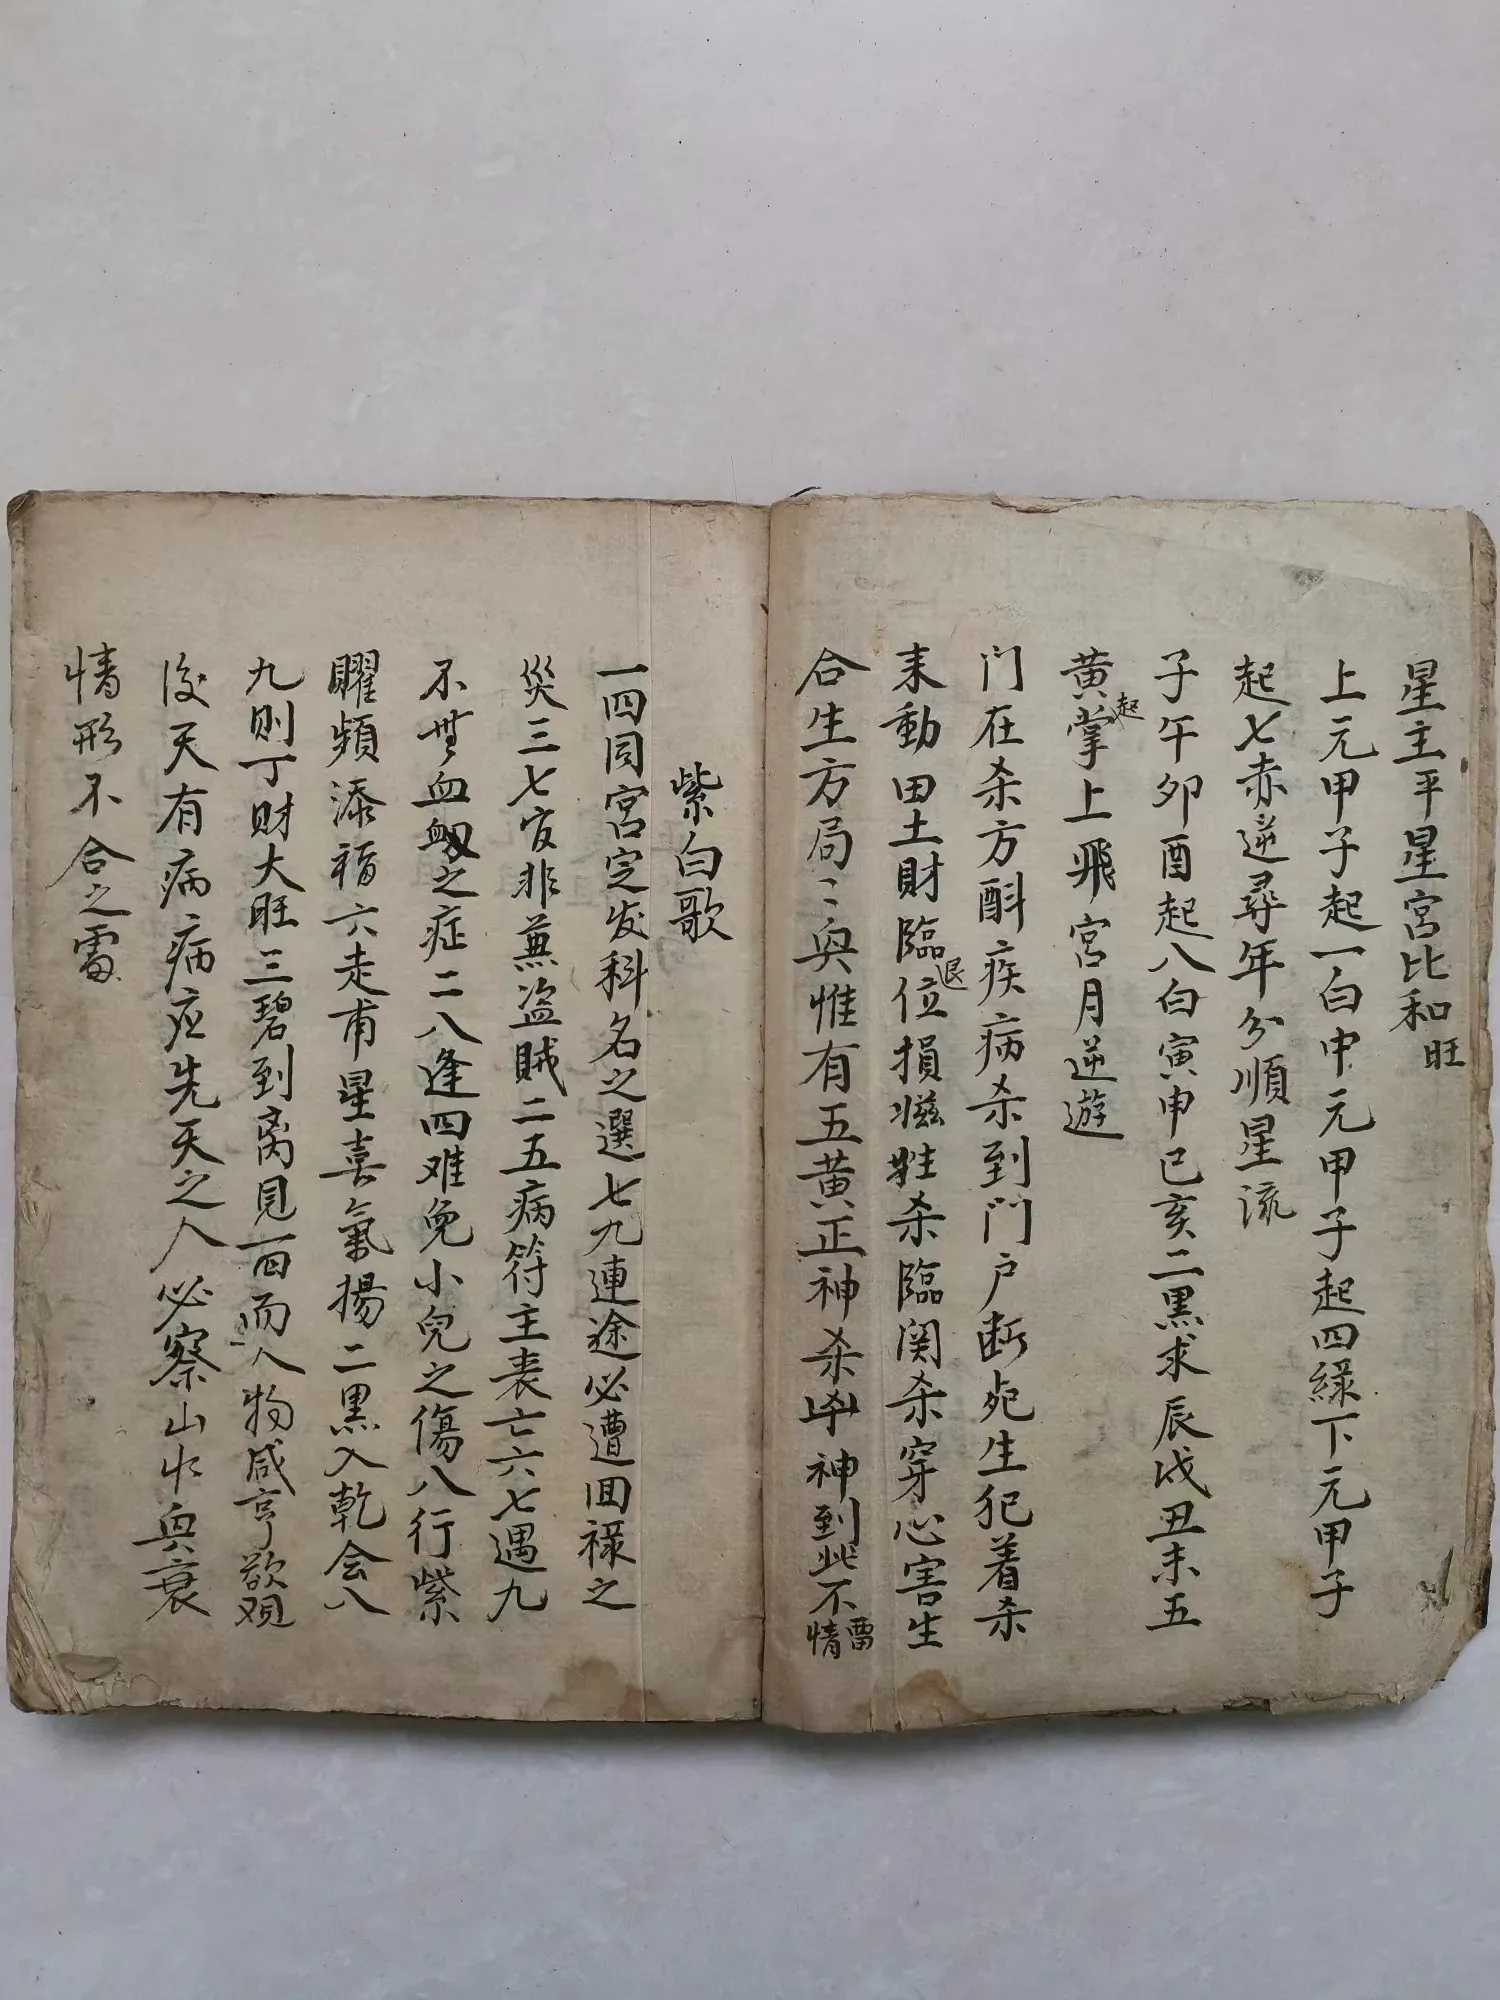 星主平星宮比和旺
上元甲子起一白中元甲子起四綠下元甲子
起七赤逆尋年分順星流
子午卯酉起八白寅申巳亥二黑求辰戌丑未五
黄起掌上飛宮月逆遊
门在杀方斟疾病杀到门户断死生犯着杀
来動田土財臨位退損滋牲杀臨関杀穿心害生
合生方局〻與惟有五黄正神杀凶神到此不留情
紫白歌
一四同宮定发科名之選七九連途必遭回禄之
災三七官非兼盗贼二五病符主丧亡六七遇九
不無血之症二八逢四难免小兒之傷八行紫
曜頻添福六走甫星喜氣揚二黑入乾会八
九則丁財大旺三碧到离見一四而人物咸亨欲观
後天有病病症先天之人必察山水與衰
情形不合之處